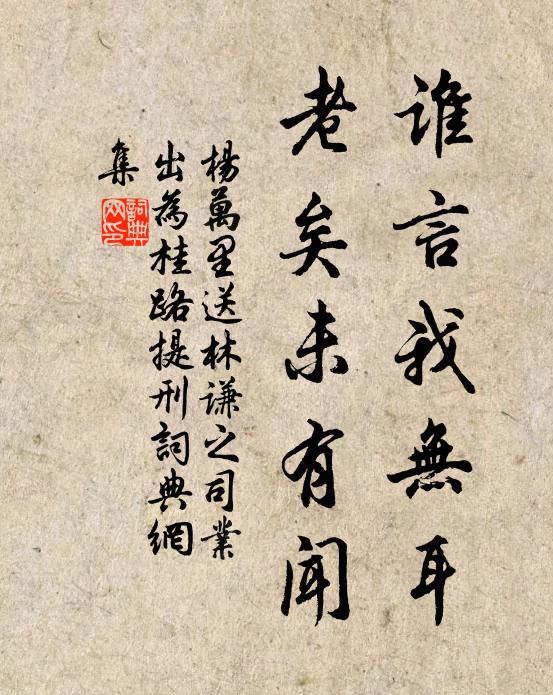 谁言我無耳
老矣未有聞
楊萬里送林谦之司業
出為桂路提刑詞典網
集
詞典
网印